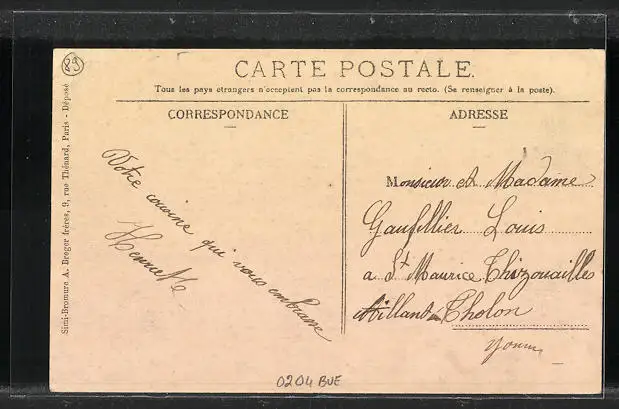 29
CARTE POSTALE.
Tous les pays étrangers n'acceptent pas la correspondance au recto. (Se renseigner à la poste).
CORRESPONDANCE
Votre cousine qui vous embrasse
Henriette
ADRESSE
Monsieur et Madame
Gaufillier Louis
a St Maurice Thizouailles
Aillant Tholon
Yonne
Simi-Bromure A. Breger frères, 9, rue Thénard, Paris - Déposé
0204 BUE